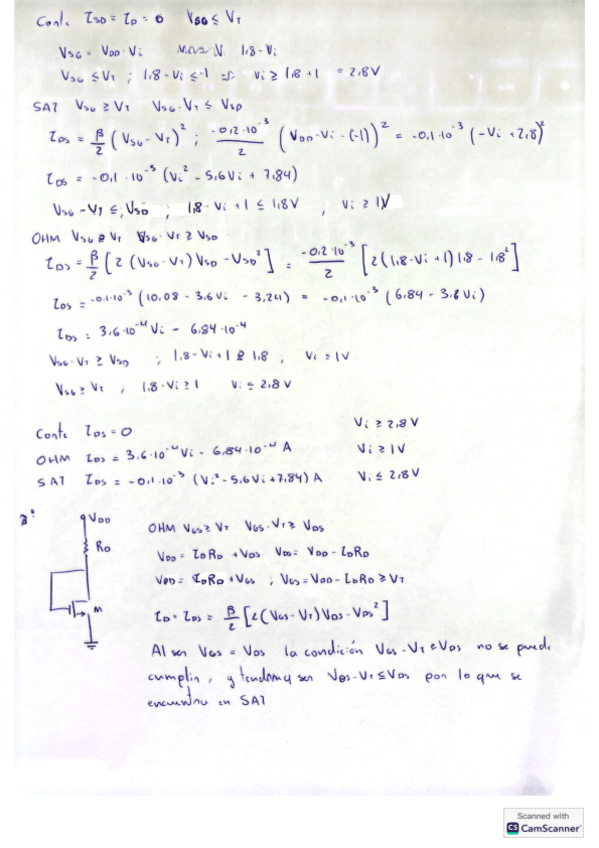 Corte I_SD = I_D = 0   V_SG ≤ V_T
V_SG = V_DD - V_i   1,8 - V_i
V_SG ≤ V_T ; 1,8 - V_i ≤ -1   V_i ≥ 1,8 + 1 = 2,8 V
SAT   V_SG ≥ V_T   V_SG - V_T ≤ V_SD
I_DS = β/2 (V_SG - V_T)² ; -0,2·10⁻³/2 (V_DD - V_i - (-1))² = -0,1·10⁻³ (-V_i + 2,8)²
I_DS = -0,1·10⁻³ (V_i² - 5,6V_i + 7,84)
V_SG - V_T ≤ V_SD ; 1,8 - V_i + 1 ≤ 1,8V ; V_i ≥ 1V
OHM V_SG ≥ V_T   V_SG - V_T ≥ V_SD
I_DS = β/2 [2(V_SG - V_T)V_SD - V_SD²] = -0,2·10⁻³/2 [2(1,8 - V_i + 1)1,8 - 1,8²]
I_DS = -0,1·10⁻³ (10,08 - 3,6V_i - 3,24) = -0,1·10⁻³ (6,84 - 3,6V_i)
I_DS = 3,6·10⁻⁴V_i - 6,84·10⁻⁴
V_SG - V_T ≥ V_SD ; 1,8 - V_i + 1 ≥ 1,8 ; V_i ≤ 1V
V_SG ≥ V_T ; 1,8 - V_i ≥ 1   V_i ≤ 2,8 V
Corte   I_DS = 0   V_i ≥ 2,8 V
OHM   I_DS = 3,6·10⁻⁴V_i - 6,84·10⁻⁴ A   V_i ≥ 1V
SAT   I_DS = -0,1·10⁻³ (V_i² - 5,6V_i + 7,84) A   V_i ≤ 2,8V
3º
V_DD
R_D
M
OHM V_GS ≥ V_T   V_GS - V_T ≥ V_DS
V_DD = I_D R_D + V_DS   V_DS = V_DD - I_D R_D
V_DD = I_D R_D + V_GS ; V_GS = V_DD - I_D R_D ≥ V_T
I_D = I_DS = β/2 [2(V_GS - V_T)V_DS - V_DS²]
Al ser V_GS = V_DS la condición V_GS - V_T ≥ V_DS no se puede
cumplir, y ser V_DS - V_T ≤ V_DS por lo que se
encuentra en SAT
Scanned with
CS CamScanner